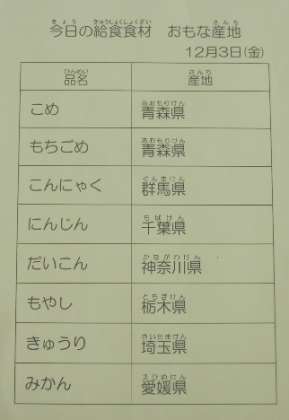 今日の給食食材 おもな産地
12月3日(金)
品名 産地
こめ 青森県
もちごめ 青森県
こんにゃく 群馬県
にんじん 千葉県
だいこん 神奈川県
もやし 栃木県
きゅうり 埼玉県
みかん 愛媛県